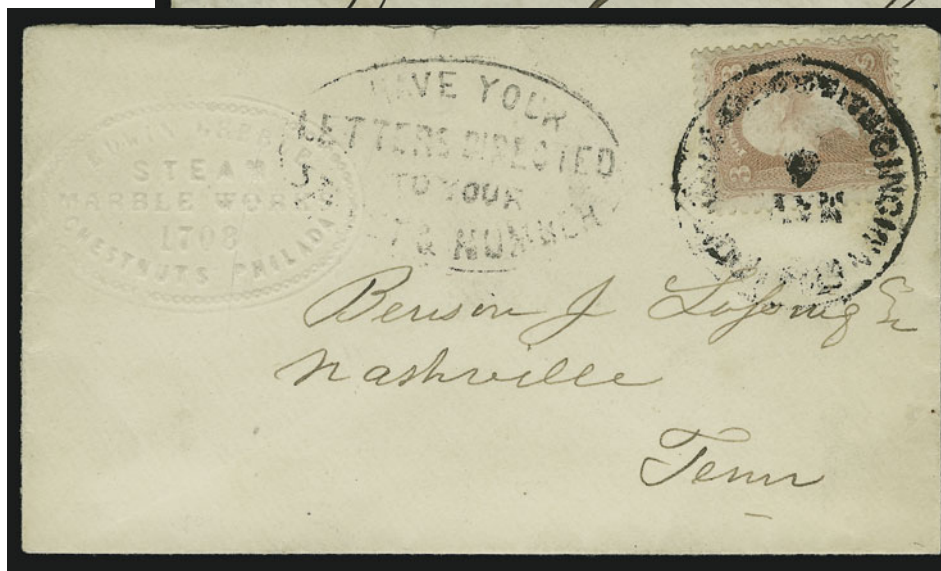 STEAM
MARBLE WORKS
1708
CHESTNUT S PHILADA
HAVE YOUR
LETTERS DIRECTED
TO YOUR
ST & NUMBER
3
3
MAY
Benson J Lossing Es
Nashville
Tenn